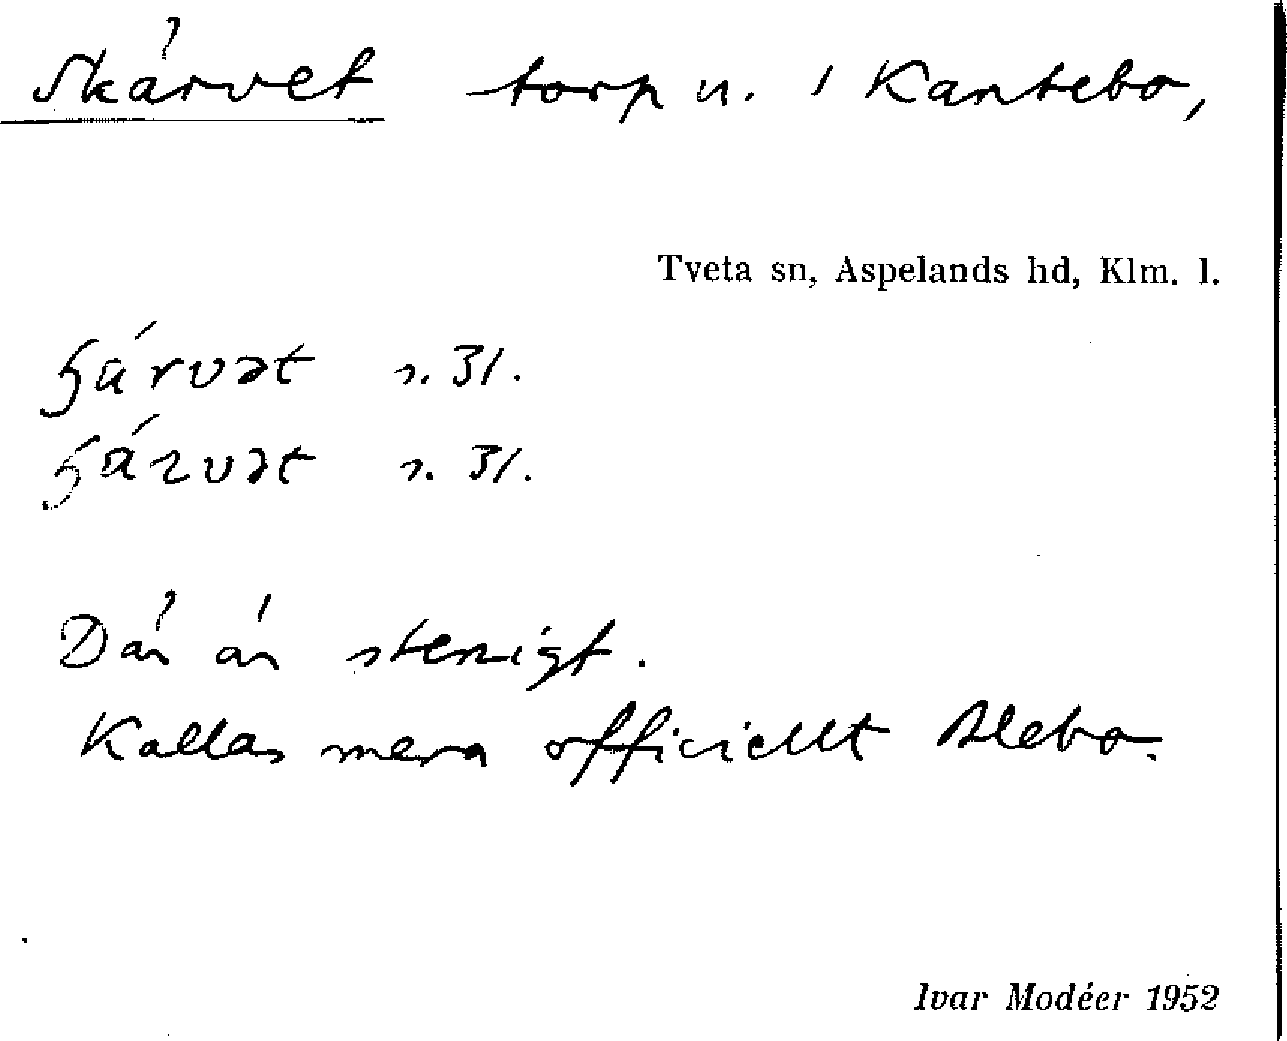 Skärvet torp u. / Kantebo,
Tveta sn, Aspelands hd, Klm. l.
s. 31.
s. 31.
Där är stenigt.
Kallas mera officiellt Alebo.
Ivar Modéer 1952